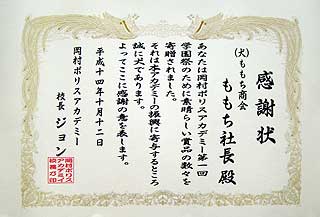 感謝状
(犬)ももち商会
ももち社長 殿
あなたは岡村ポリスアカデミー第一回
学園祭のために素晴らしい賞品の数々を
寄贈されました。
それは本アカデミーの振興に寄与するところ
誠に犬であります。
よってここに感謝の意を表します。
平成十四年十月十二日
岡村ポリスアカデミー
校長 ジョン
岡村ポリス
アカデミイ
校長乃印